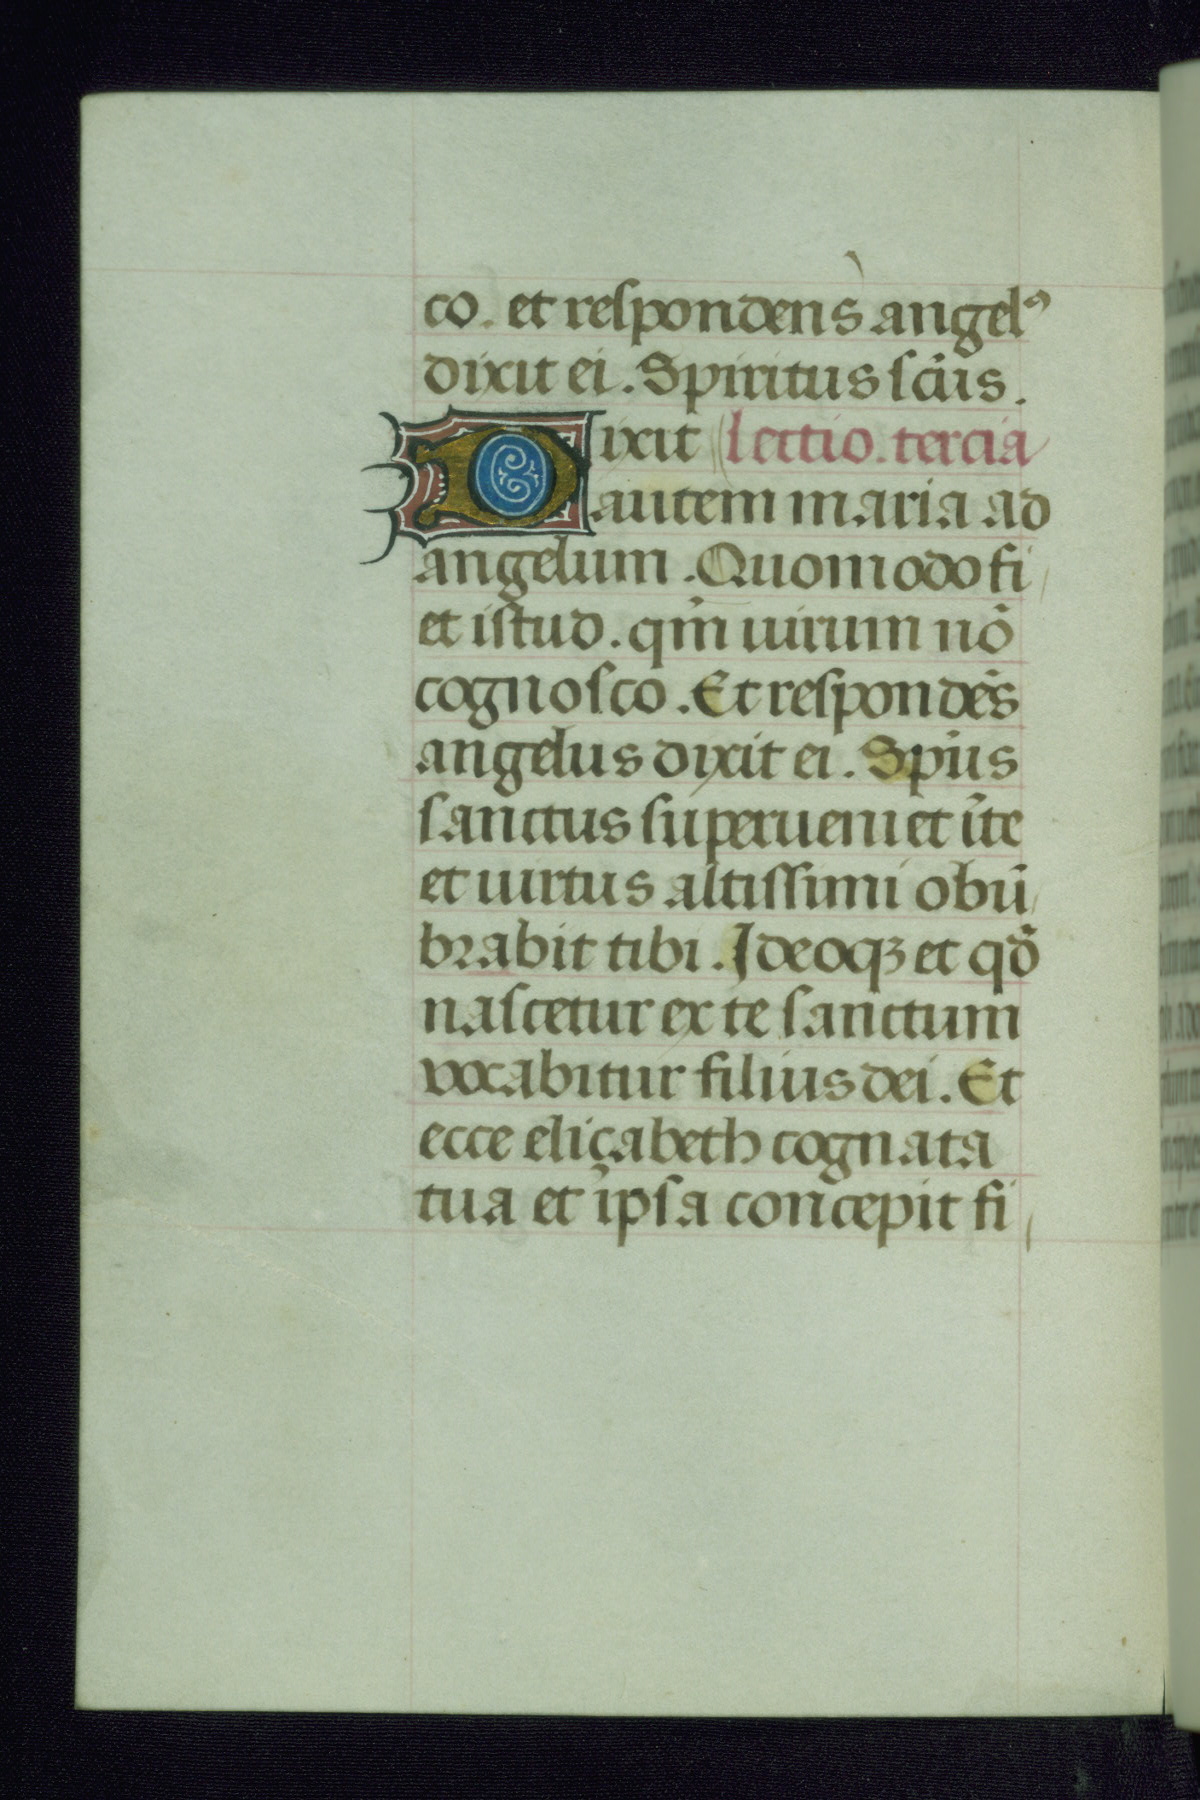 co. et respondens angelꝰ
dixit ei. Spiritus sc̄us.
Dixit lectio. tercia
autem maria ad
angelum. Quomodo fi
et istud. qm̄ uirum nō
cognosco. Et respondēs
angelus dixit ei. Sp̄us
sanctus superueniet īte
et uirtus altissimi obū
brabit tibi. Ideoqꝫ et qđ
nascetur ex te sanctum
vocabitur filius dei. Et
ecce eliçabeth cognata
tua et ipsa concepit fi